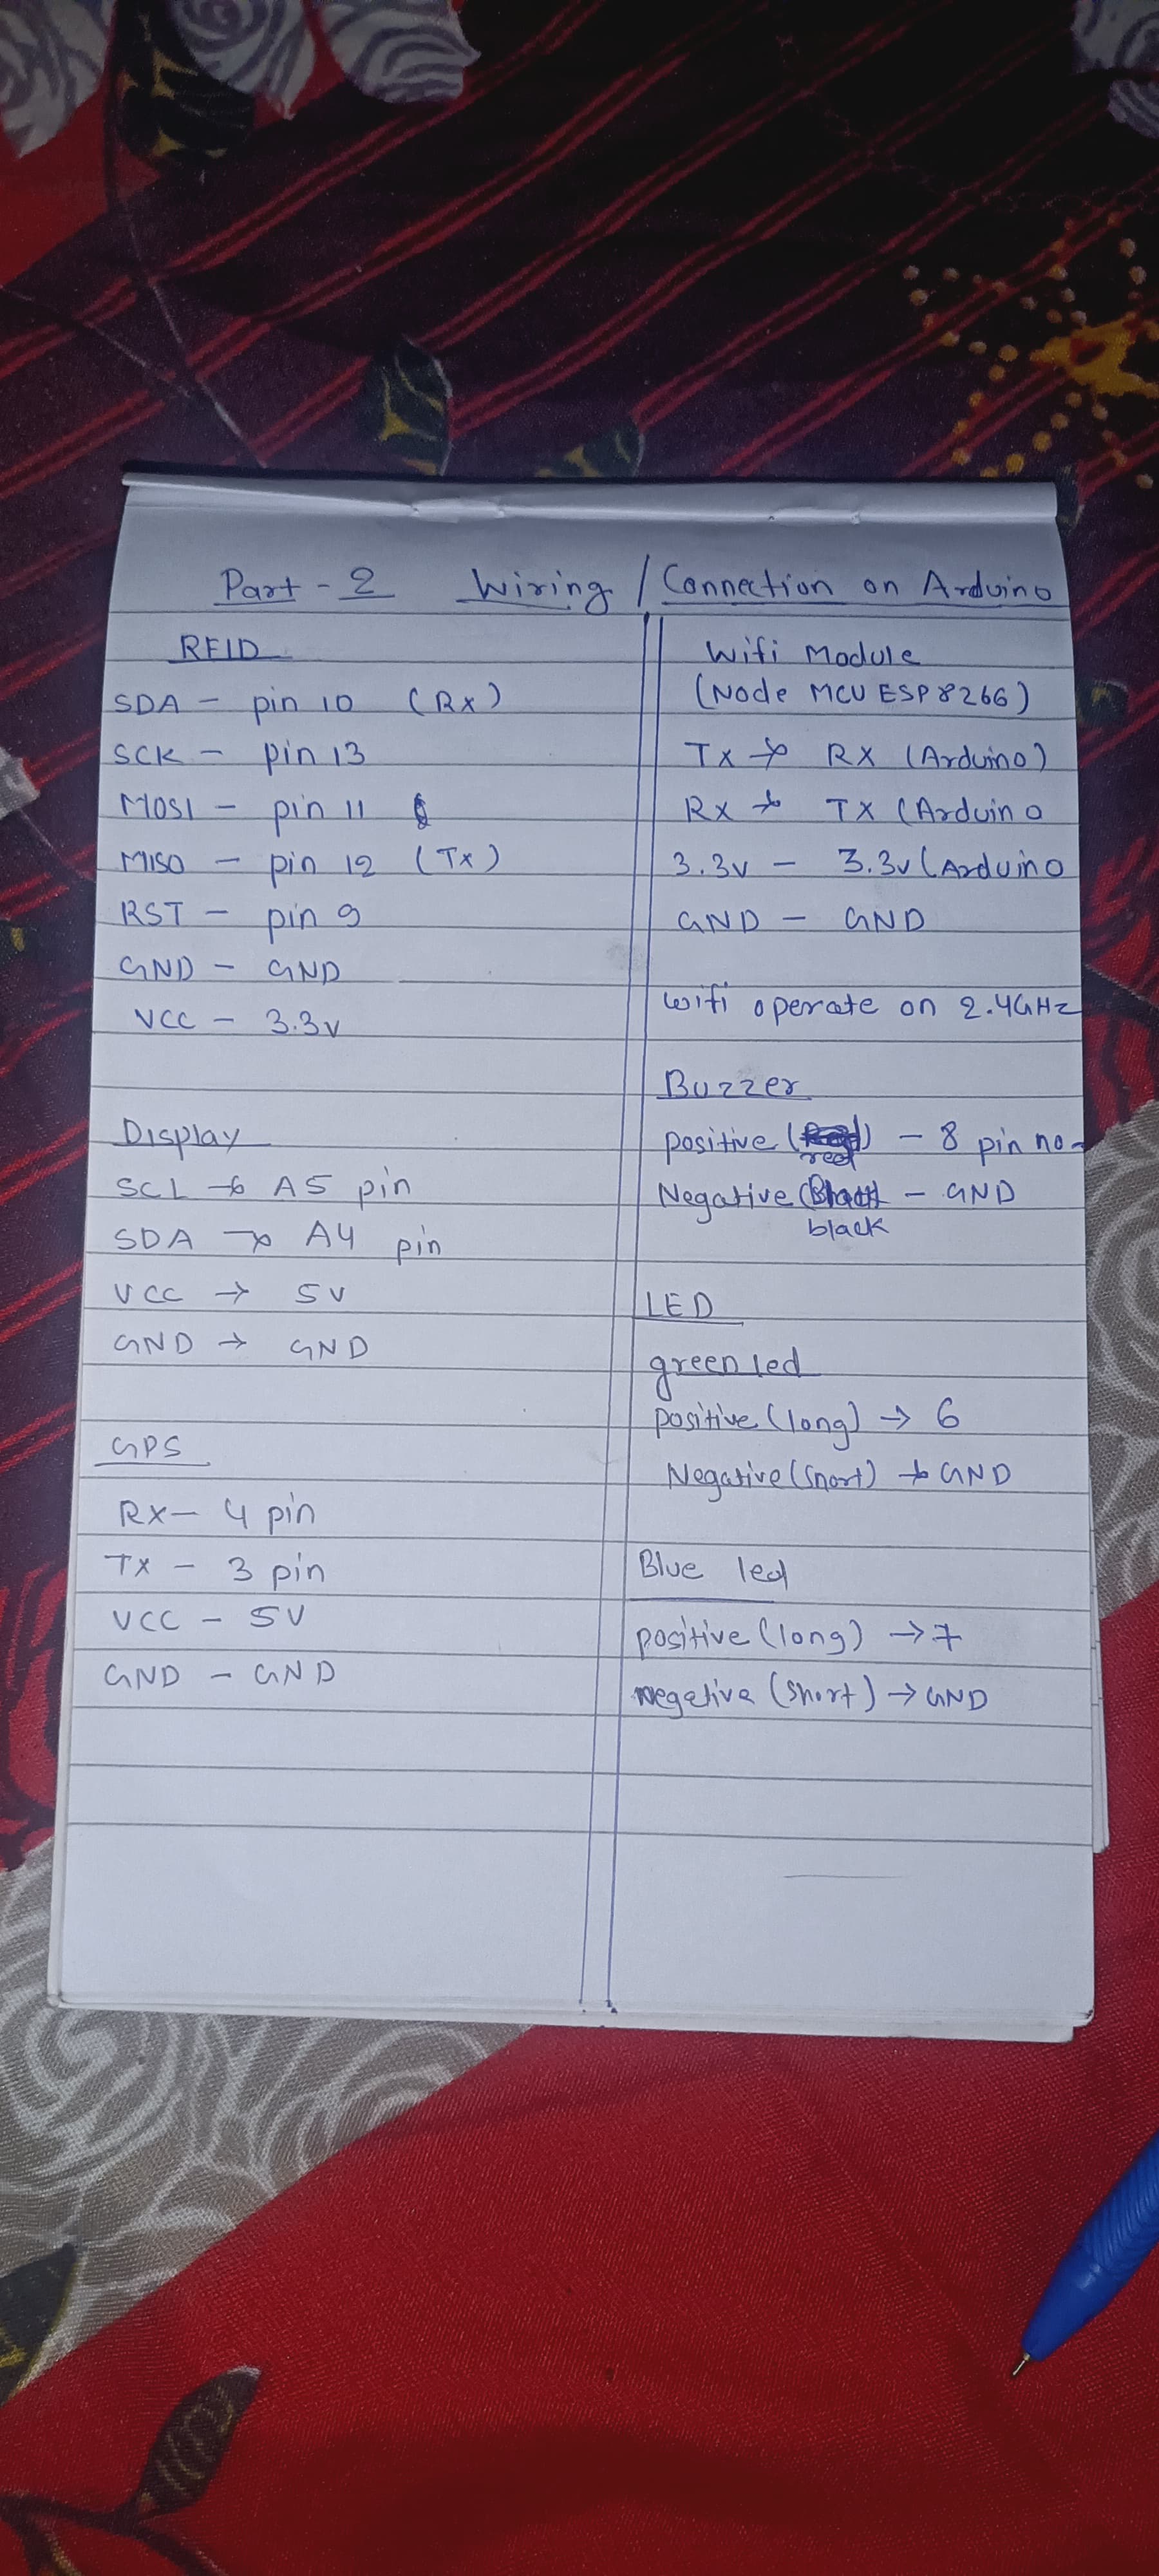 Part - 2 Wiring / Connection on Arduino
RFID
SDA - pin 10 (Rx)
SCK - pin 13
MOSI - pin 11
MISO - pin 12 (Tx)
RST - pin 9
GND - GND
VCC - 3.3v
Display
SCL → A5 pin
SDA → A4 pin
VCC → 5V
GND → GND
GPS
Rx - 4 pin
Tx - 3 pin
VCC - 5V
GND - GND
Wifi Module
(Node MCU ESP8266)
Tx → RX (Arduino)
Rx → TX (Arduino
3.3v - 3.3v (Arduino
GND - GND
wifi operate on 2.4GHz
Buzzer
positive (red) - 8 pin no.
Negative (Black - GND
black
LED
green led
positive (long) → 6
Negative (short) → GND
Blue led
positive (long) → 7
negative (short) → GND